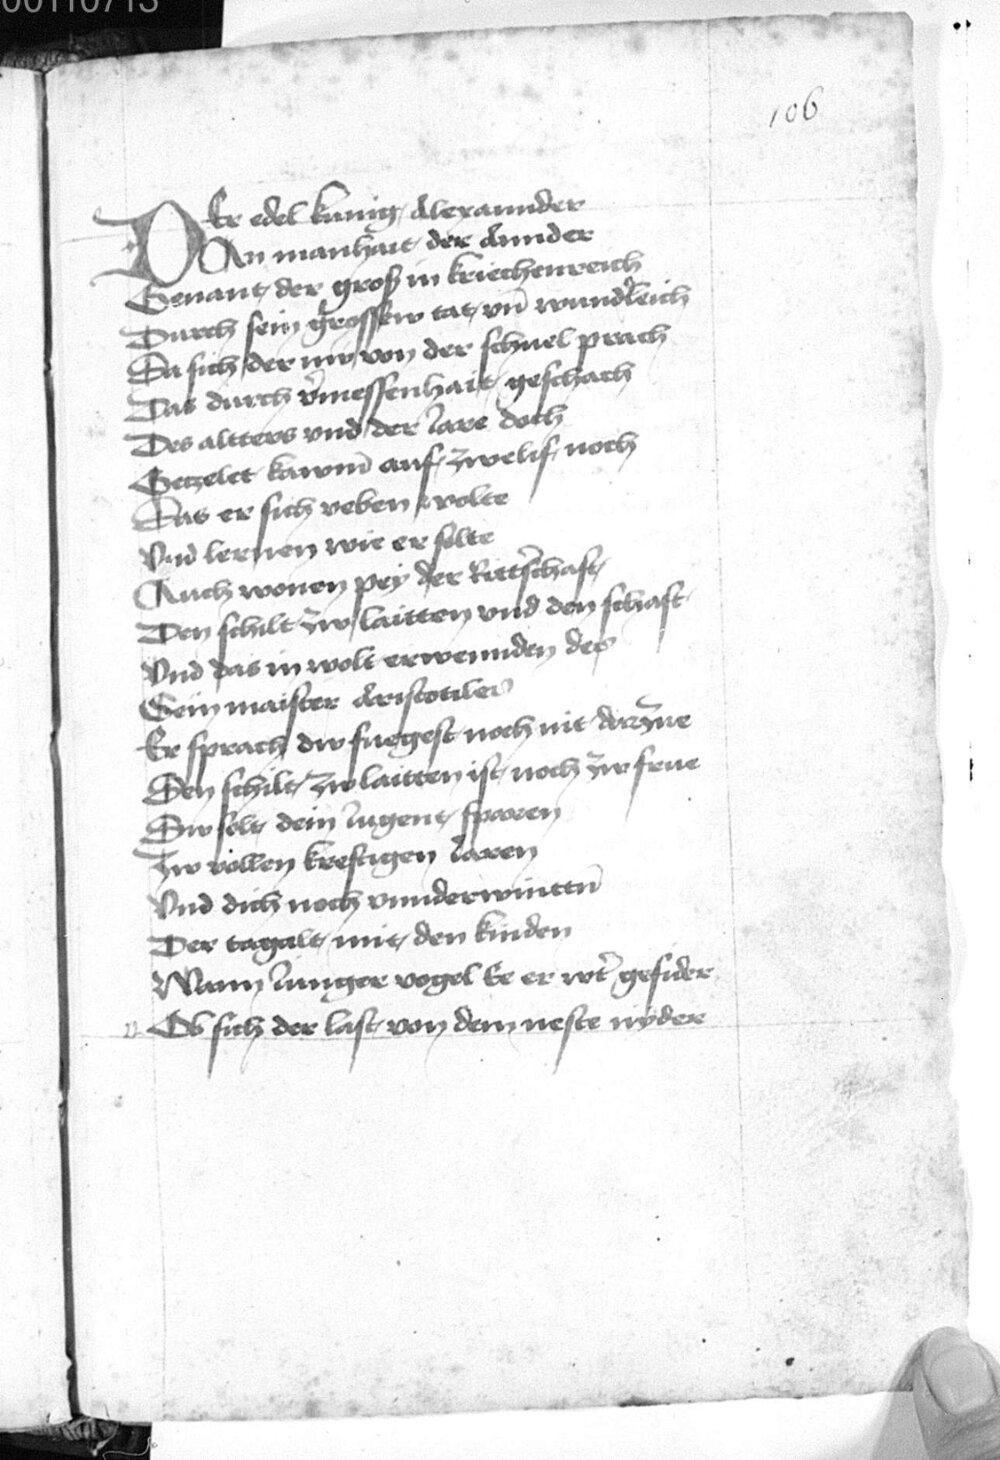 00110713
106
DEr edel kunig Alexannder
An manhait der Annder
Genant der groß in kriechenreich
Durch sein grossew tat vn̄ wundʼleich
Da sich der nw von der schnel prach
Das durch vʼmessenhait geschach
Des altters vnd der Jare doch
Getzelet kawm̄ auf zwelif noch
Das er sich veben wolte
Vnd lernen wie er solte
Auch wonen pey der Rittʼschaft
Den schilt zw laitten vnd den schaft
Vnd das in wolt erwennden des
Sein maister Aristotiles
Er sprach dw fuegest noch nit darzue
Den schilt zw laitten ist noch zw frue
Dw solt dein Jugent sparen
Zw vollen kreftigen Jaren
Vnd dich noch vnnderwintn̄
Der tagalt mit den kinden
Wann Junger vogel Ee er wʼt gefider
Ob sich der last von dem neste nyder